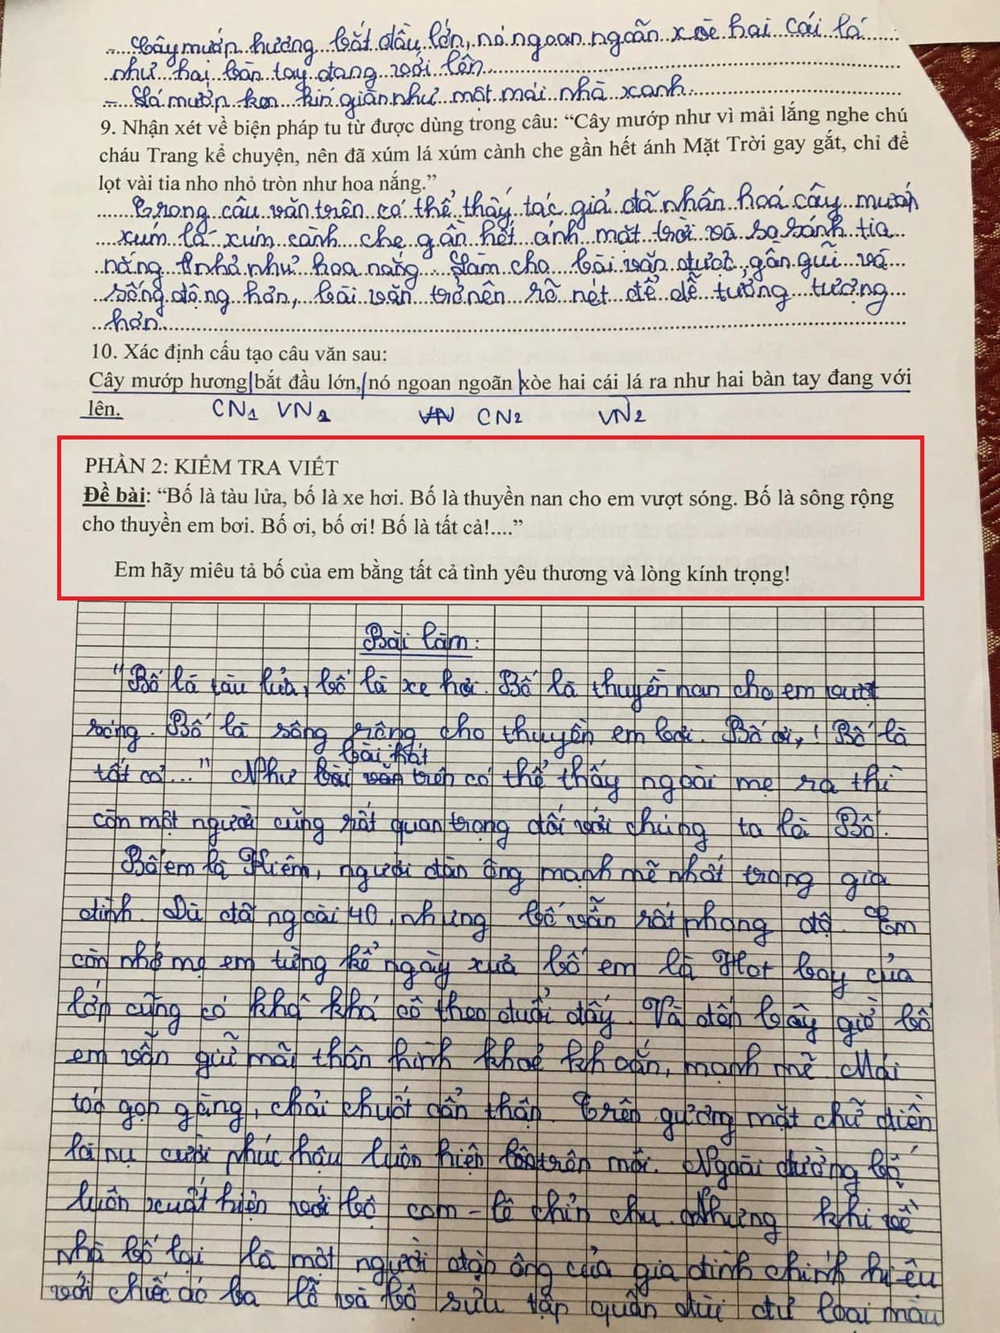 Cây mướp hương bắt đầu lớn, nó ngoan ngoãn xoè hai cái lá
như hai bàn tay đang với lên
- Lá mướp kín giàn như một mái nhà xanh.
9. Nhận xét về biện pháp tu từ được dùng trong câu: “Cây mướp như vì mải lắng nghe chú
cháu Trang kể chuyện, nên đã xúm lá xúm cành che gần hết ánh Mặt Trời gay gắt, chỉ để
lọt vài tia nho nhỏ tròn như hoa nắng.”
Trong câu văn trên có thể thấy tác giả đã nhân hoá cây mướp
xúm lá xúm cành che gần hết ánh mặt trời và so sánh tia
nắng nhỏ như hoa nắng làm cho bài văn được gần gũi và
sống động hơn, bài văn trở nên rõ nét để dễ tưởng tượng
hơn
10. Xác định cấu tạo câu văn sau:
Cây mướp hương bắt đầu lớn, nó ngoan ngoãn xòe hai cái lá ra như hai bàn tay đang với
lên. CN1 VN1 VN CN2 VN2
PHẦN 2: KIỂM TRA VIẾT
Đề bài: “Bố là tàu lửa, bố là xe hơi. Bố là thuyền nan cho em vượt sóng. Bố là sông rộng
cho thuyền em bơi. Bố ơi, bố ơi! Bố là tất cả!....”
Em hãy miêu tả bố của em bằng tất cả tình yêu thương và lòng kính trọng!
Bài làm:
"Bố là tàu lửa, bố là xe hơi. Bố là thuyền nan cho em vượt
sóng. Bố là sông rộng cho thuyền em bơi. Bố ơi,! Bố là
bài hát
tất cả..." Như bài văn trên có thể thấy ngoài mẹ ra thì
còn một người cũng rất quan trọng đối với chúng ta là Bố.
Bố em là Hiếm, người đàn ông mạnh mẽ nhất trong gia
đình. Dù đã ngoài 40, nhưng bố vẫn rất phong độ. Em
còn nhớ mẹ em từng kể ngày xưa bố em là Hot boy của
lớp cũng có khá khá cô theo đuổi đấy. Và đến bây giờ bố
em vẫn giữ mãi thân hình khoẻ khoắn, mạnh mẽ. Mái
tóc gọn gàng, chải chuốt cẩn thận. Trên gương mặt chữ điền
là nụ cười phúc hậu luôn hiện trên môi. Ngoài đường bố
luôn xuất hiện với bộ com-lê chỉn chu. Nhưng khi về
nhà bố lại là một người đàn ông của gia đình chính hiệu
với chiếc áo ba lỗ và bộ sưu tập quần đùi đủ loại màu